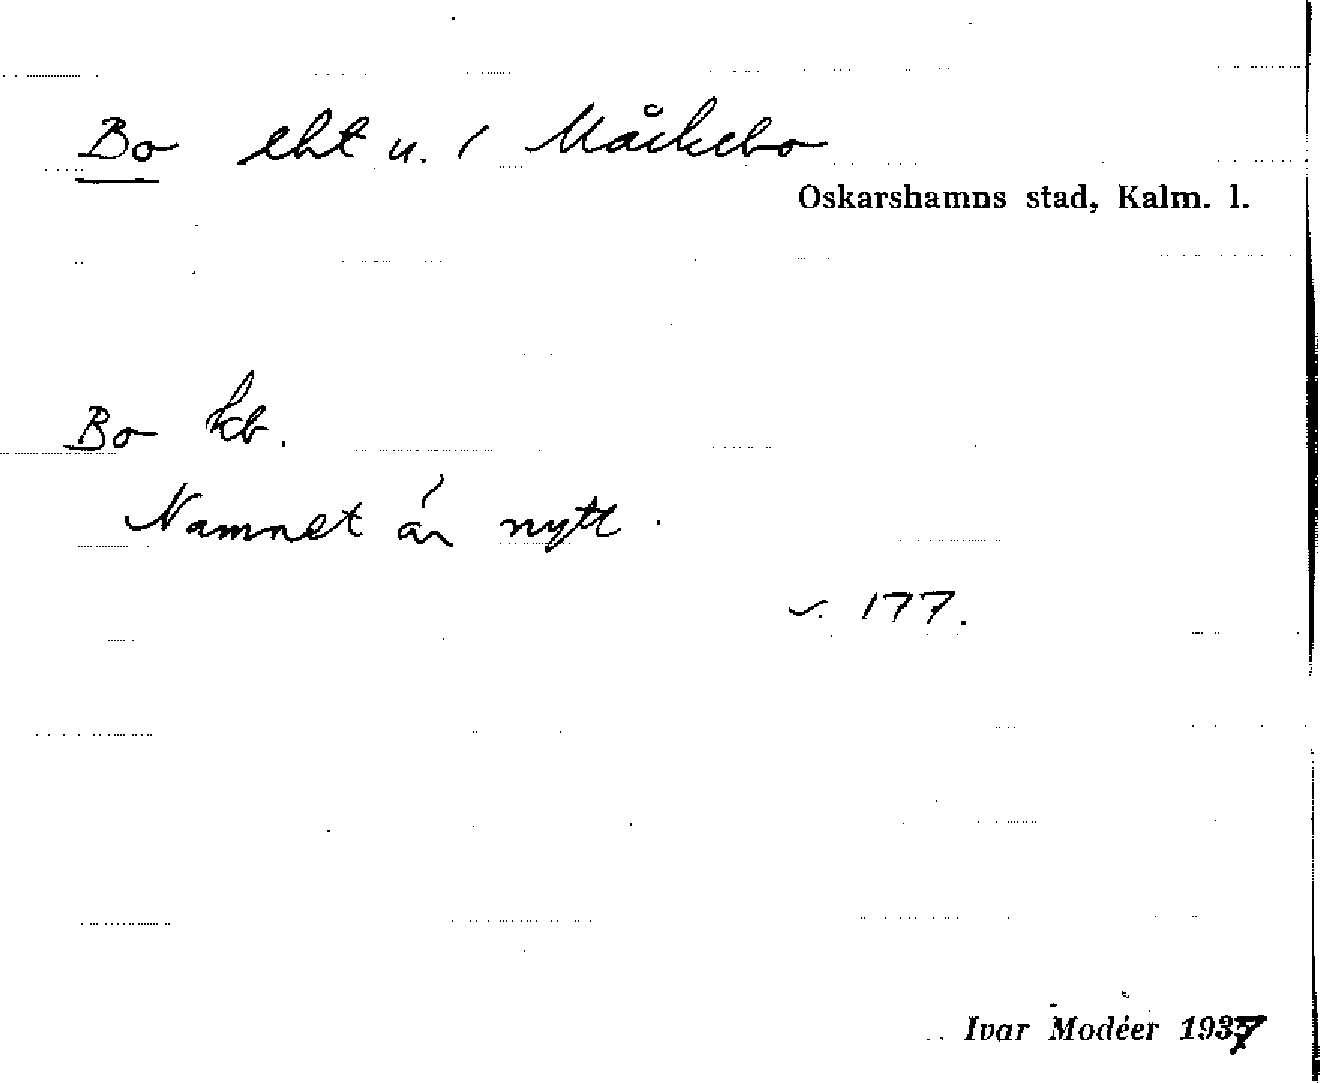 Bo eht u. / Måckebo
Oskarshamns stad, Kalm. l.
Bo kb.
Namnet är nytt.
s. 177.
Ivar Modéer 1937